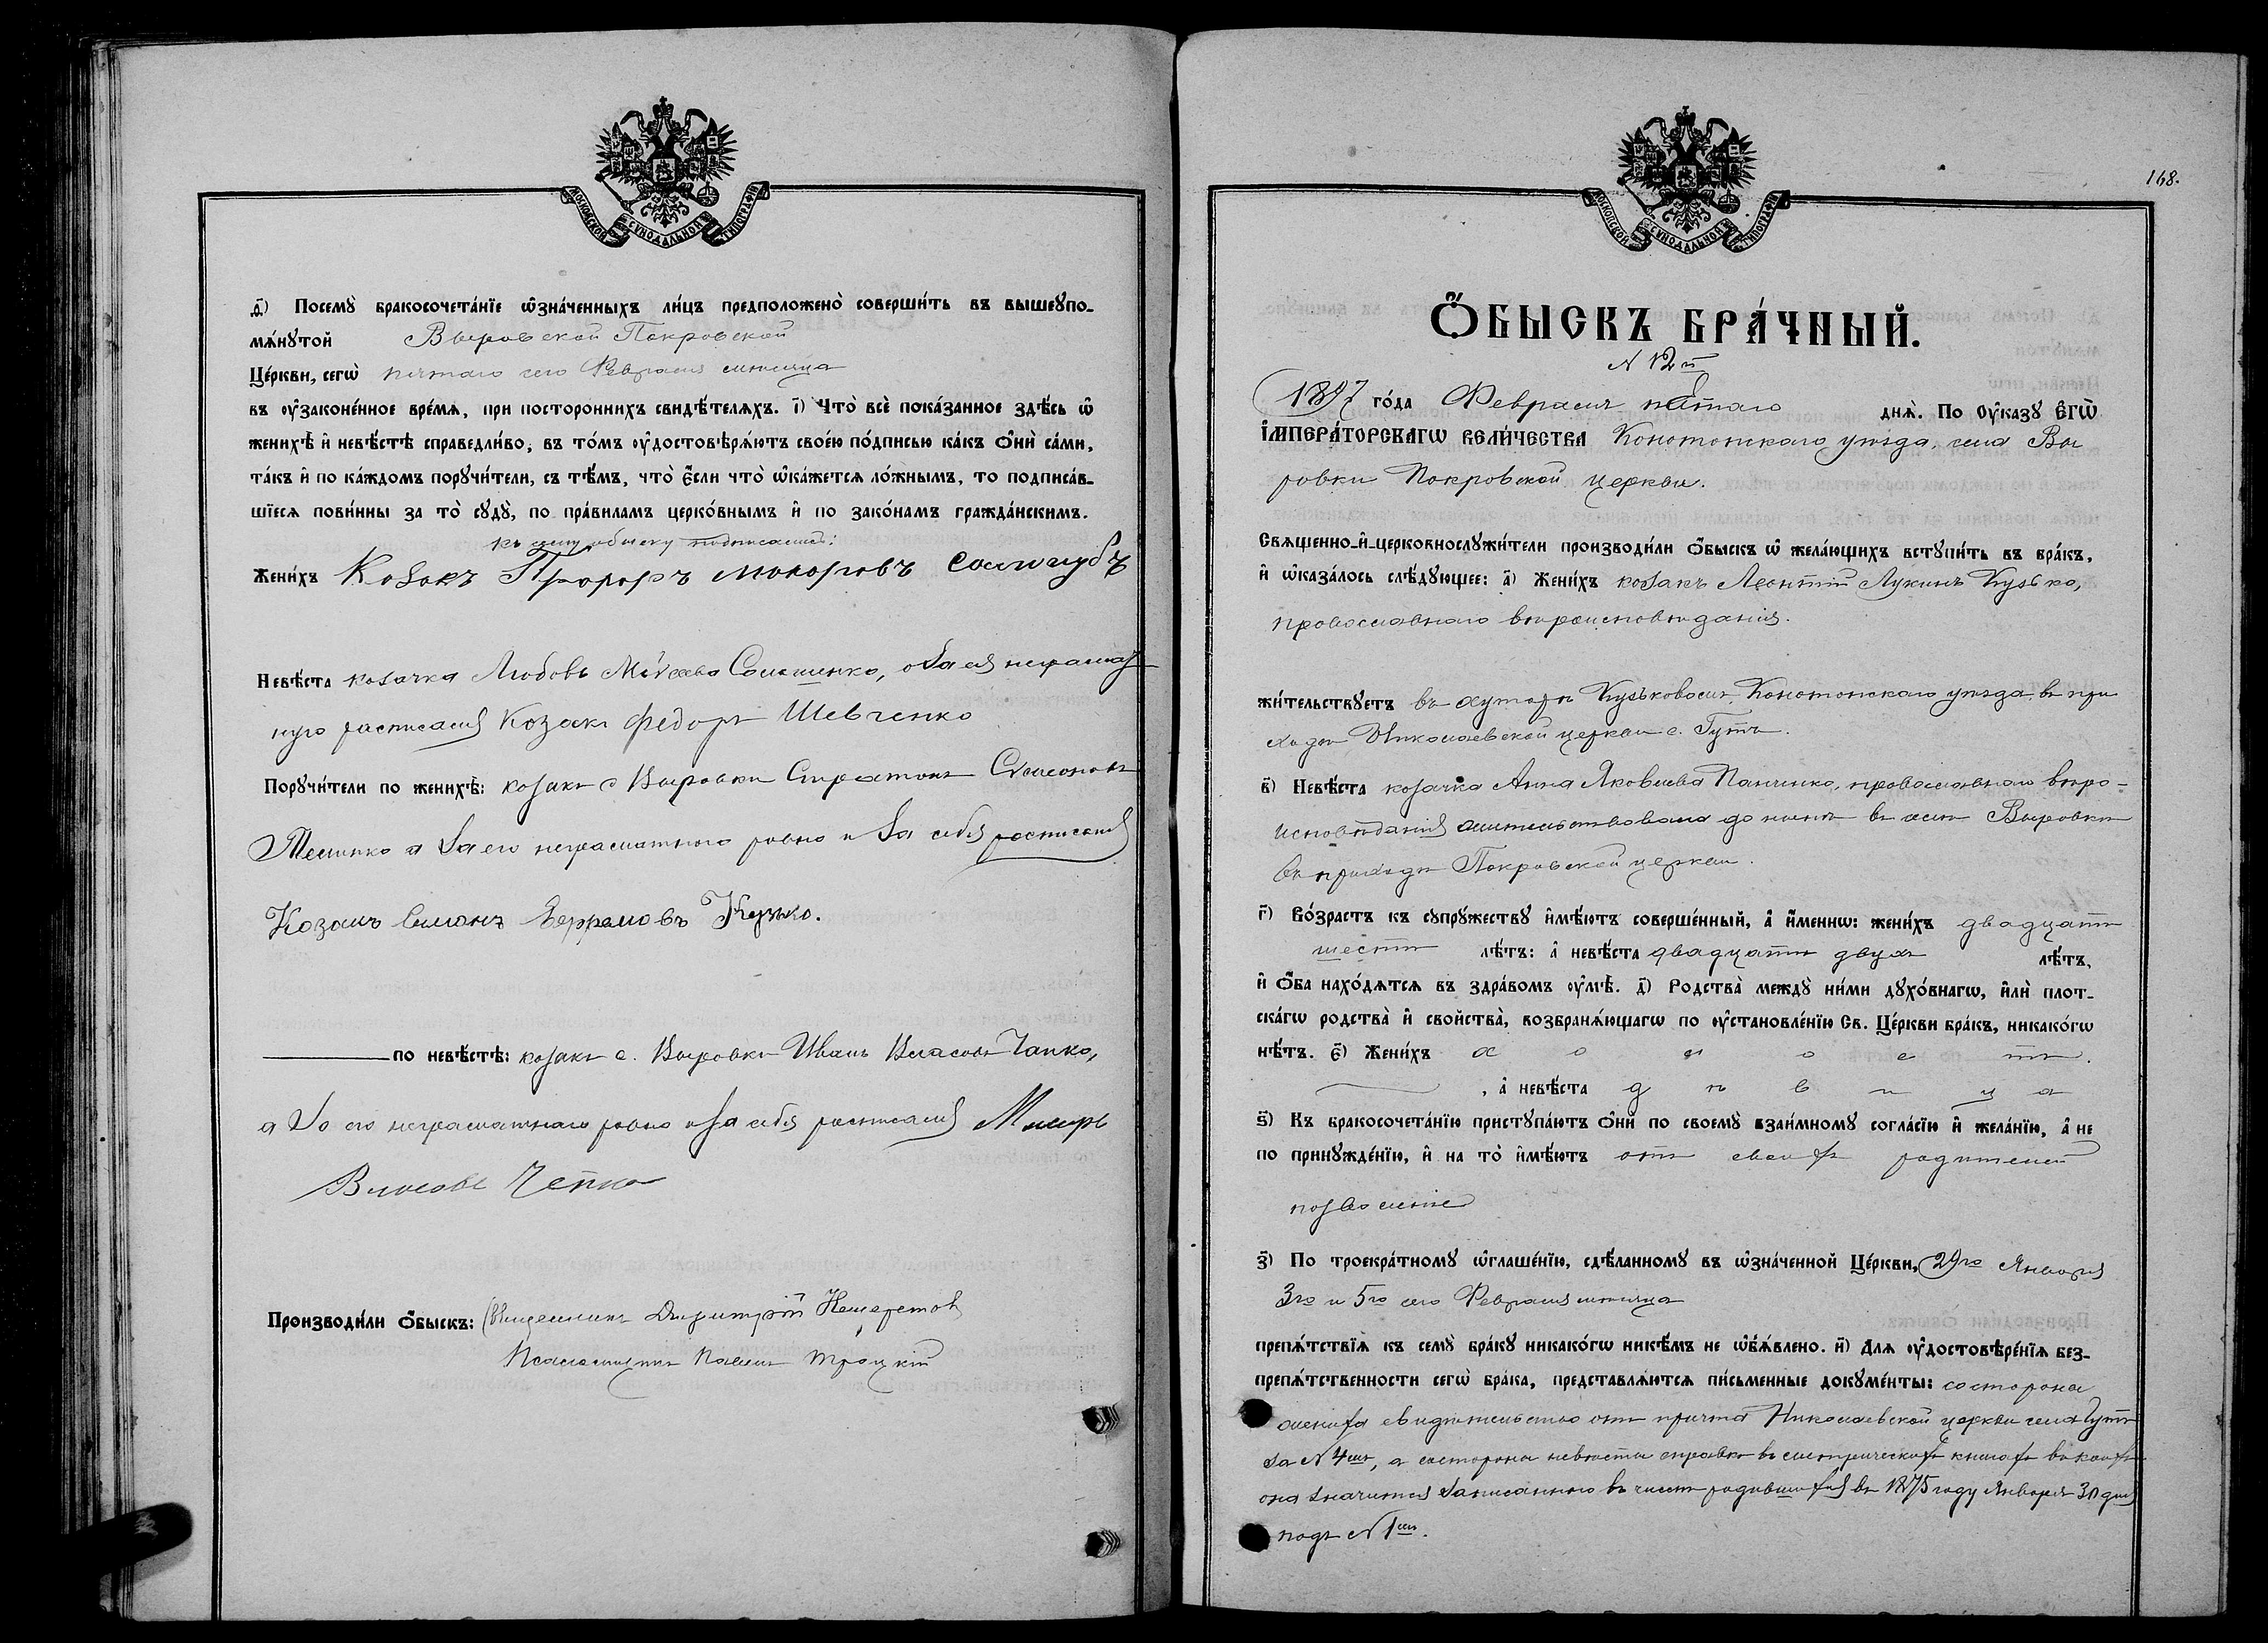 МОСКОВСКОЙ СѴНОДАЛЬНОЙ ТИПОГРАФІИ
д҃і) Посемꙋ̀ бракосочета́нїе ѡ҆зна́ченныхъ ли́цъ предположено̀ соверши́ть въ вышеꙋпо-
мѧ́нꙋтой Выровской Покровской
Це́ркви, сегѡ̀ пятаго сего Февраля мѣсяца
въ ᲂу҆законе́нное вре́мѧ, при посторонниxъ свидѣ́телѧхъ. і҃) Что̀ всѐ пока́занное здѣ́сь ѡ҆
женихѣ̀ и҆ невѣ́стѣ справедли́во, въ то́мъ ᲂу҆достовѣрѧ́ютъ свое́ю по́дписью ка́къ ѻ҆нѝ са́ми,
та́къ и҆ по ка́ждомъ порꙋчи́тели, съ тѣ́мъ, что̀ є҆́сли что̀ ѡ҆ка́жетсѧ ло́жнымъ, то подписа́в-
шїесѧ пови́нны за то̀ сꙋдꙋ̀, по пра́виламъ церко́внымъ и҆ по зако́намъ гражда́нскимъ.
къ сему обыску подписались:
Жени́хъ Козакъ Прохоръ Макаровъ Салогубъ
Невѣ́ста козачка Любовь Моѵсеева Салошенко, а за ея неграмот
ную расписался Козакъ Федоръ Шевченко
Порꙋчи́тели по женихѣ̀: козакъ с. Выровки Стратонъ Симоновъ
Темченко а за его неграмотнаго равно и за себя росписался
Козакъ Симонъ Ефремовъ Кузько.
по невѣ́стѣ: козакъ с. Выровки Иванъ Власовъ Чапко,
а за его неграмотнаго равно и за себя росписался
Власовъ Чепко
Производи́ли ѻ҆́быскъ: Священникъ Димитрій
Псаломщикъ Павелъ Троцкій
168.
МОСКОВСКОЙ СѴНОДАЛЬНОЙ ТИПОГРАФІИ
Ѻ҆́БЫСКЪ БРА́ЧНЫЙ.
N 12й
1897 го́да Февраля пятаго днѧ̀. По ᲂу҆казꙋ Є҆ГѠ̀
І҆МПЕРА́ТОРСКАГѠ ВЕЛИ́ЧЕСТВА Конотопскаго уѣзда, села Вы
ровки Покровской церкви.
Свѧщенно-и҆-церковнослꙋжи́тели производи́ли ѻ҆́быскъ ѡ҆ жела́ющихъ встꙋпи́ть въ бра́къ,
и҆ ѡ҆каза́лось слѣ́дꙋющее: а҃) Жени́хъ козакъ Леонтій Лукинъ Кузько,
православнаго вѣроисповѣданія.
жи́тельствꙋетъ въ хуторѣ Кузьковомъ, Конотопскаго уѣзда въ при
ходѣ Николаевской церкви с. Гутъ.
в҃) Невѣ́ста козачка Анна Яковлева Панченко, православнаго вѣро-
исповѣданія жительствовала до нынѣ въ селѣ Выровкѣ
въ приходѣ Покровской церкви.
г҃) Во́зрастъ къ сꙋпрꙋ́жествꙋ и҆мѣ́ютъ соверше́нный, а҆ и҆́меннѡ: жени́хъ двадцати
шести лѣ́тъ: а҆ невѣ́ста двадцати двухъ лѣ́тъ,
и҆ ѻ҆́ба нахо́дѧтсѧ въ здра́вомъ ᲂу҆мѣ̀. д҃) Родства̀ междꙋ̀ ни́ми дꙋхо́внагѡ, и҆лѝ плот-
ска́гѡ родства̀ и҆ свойства̀, возбранѧ́ющагѡ по ᲂу҆становле́нїю Св. Це́ркви бра́къ, никако́гѡ
нѣ́тъ. є҃) Жени́хъ х о л о с т ъ.
, а҆ невѣ́ста д ѣ в и ц а
ѕ҃) Къ бракосочета́нїю пристꙋпа́ютъ ѻ҆нѝ по своемꙋ̀ взаи́мномꙋ согла́сїю и҆ жела́нїю, а҆ не
по принꙋжде́нїю, и҆ на то̀ и҆мѣ́ютъ отъ своихъ родителей
позволеніе
з҃) По троекра́тномꙋ ѡ҆глаше́нїю, сдѣ́ланномꙋ въ ѡ҆зна́ченной Це́ркви, 29го Января
3го и 5го сего Февраля мѣсяца
препѧ́тствїѧ къ семꙋ̀ бра́кꙋ никако́гѡ никѣ́мъ не ѡ҆б̾ѧ́влено. и҃) Длѧ ᲂу҆достовѣре́нїѧ без-
препѧ́тственности сегѡ̀ бра́ка, представлѧ́ютсѧ пи́сьменные докꙋме́нты: со стороны
жениха свидѣтельство отъ причта Николаевской церкви села Гутъ
за N 4мъ, а со стороны невѣсты справка въ метрическихъ книгахъ въ коихъ
она значится записанною въ числѣ родившихся въ 1875 году Января 30 дня
подъ N 1мъ.